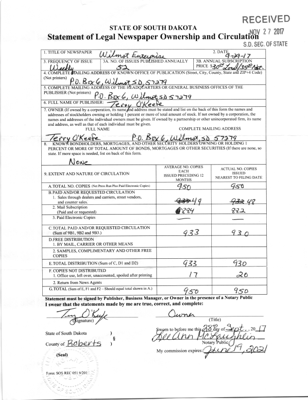 RECEIVED
NOV 27 2017
S.D. SEC. OF STATE
STATE OF SOUTH DAKOTA
Statement of Legal Newspaper Ownership and Circulation
1. TITLE OF NEWSPAPER Wilmot Enterprise
2. DATE 9-29-17
3. FREQUENCY OF ISSUE Weekly
3A. NO. OF ISSUES PUBLISHED ANNUALLY 52
3B. ANNUAL SUBSCRIPTION PRICE
4. COMPLETE MAILING ADDRESS OF KNOWN OFFICE OF PUBLICATION (Street, City, County, State and ZIP+4 Code) (Not printers) P.O. Box 6, Wilmot, SD 57279
5. COMPLETE MAILING ADDRESS OF THE HEADQUARTERS OF GENERAL BUSINESS OFFICES OF THE PUBLISHER (Not printers) P.O. Box 6, Wilmot, SD 57279
6. FULL NAME OF PUBLISHER Terry O'Keefe
7. OWNER (If owned by a corporation, its name and address must be stated and list on the back of this form the names and
addresses of stockholders owning or holding 1 percent or more of total amount of stock. If not owned by a corporation, the
names and addresses of the individual owners must be given. If owned by a partnership or other unincorporated firm, its name
and address, as well as that of each individual must be given.)
FULL NAME COMPLETE MAILING ADDRESS
Terry O'Keefe P.O. Box 6, Wilmot, SD 57279
8. KNOWN BONDHOLDERS, MORTGAGES, AND OTHER SECURITY HOLDERS OWNING OR HOLDING 1
PERCENT OR MORE OF TOTAL AMOUNT OF BONDS, MORTGAGES OR OTHER SECURITIES (If there are none, so
state. If more weeks is needed, list on back of this form)
None
9. EXTENT AND NATURE OF CIRCULATION
AVERAGE NO. COPIES EACH ISSUED PRECEDING 12 MONTHS
ACTUAL NO. COPIES ISSUED NEAREST TO FILING DATE
A. TOTAL NO. COPIES 950 950
B. PAID AND/OR REQUESTED CIRCULATION
1. Sales through dealers and carriers, street vendors, and counter sales 49 48
2. Mail Subscription (Paid and or requested) 884 882
3. Paid Electronic Copies
C. TOTAL PAID AND/OR REQUESTED CIRCULATION
(Sum of 9B1, 9B2 and 9B3) 933 930
D. FREE DISTRIBUTION
1. BY MAIL, CARRIER OR OTHER MEANS
2. SAMPLES, COMPLIMENTARY AND OTHER FREE COPIES
E. TOTAL DISTRIBUTION (Sum of C, D1 and D2) 933 930
F. COPIES NOT DISTRIBUTED
1. Office use, left over, unaccounted, spoiled after printing 17 20
2. Return from News Agents
G. TOTAL (Sum of E, F1 and F2 - Should equal total shown in A) 950 950
Statement must be signed by Publisher, Business Manager, or Owner in the presence of a Notary Public
I swear that the statements made by me are true, correct, and complete:
Owner
(Signature) (Title)
State of South Dakota )
County of Roberts )
(Seal)
Sworn to before me this day of Sept. 2017
Notary Public
My commission expires: June 19, 2021